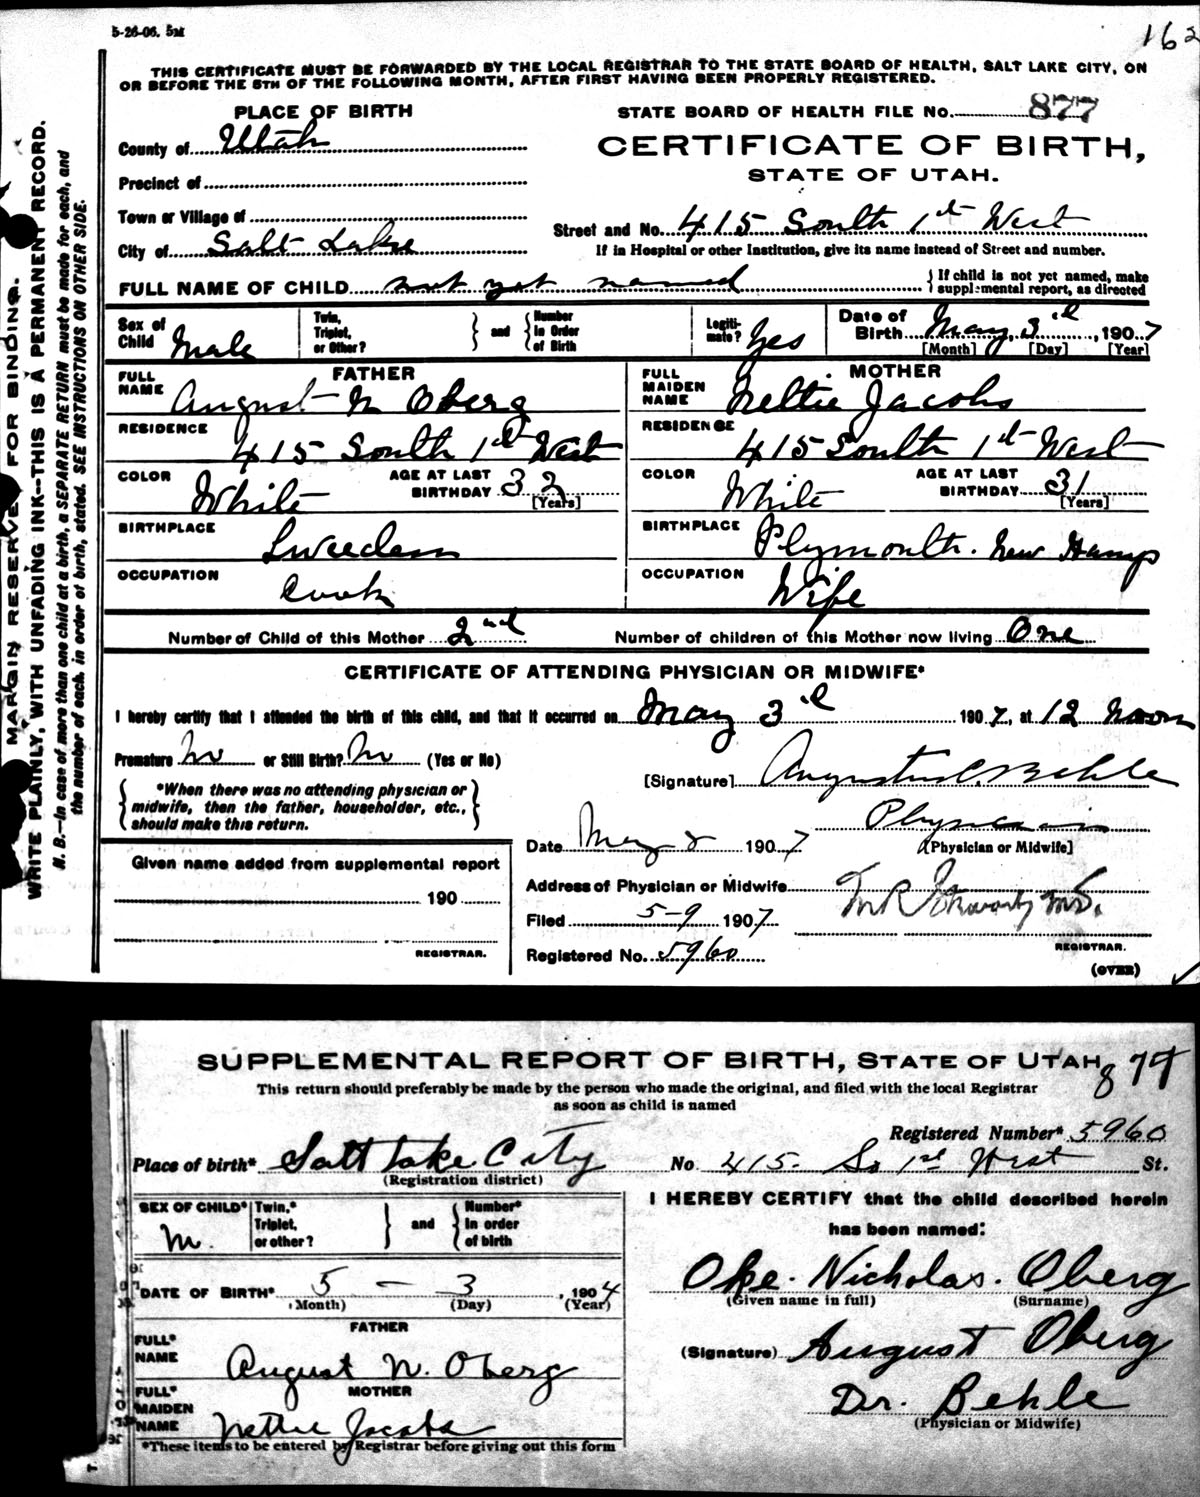 5-26-06. 5M
162
THIS CERTIFICATE MUST BE FORWARDED BY THE LOCAL REGISTRAR TO THE STATE BOARD OF HEALTH, SALT LAKE CITY, ON
OR BEFORE THE 5TH OF THE FOLLOWING MONTH, AFTER FIRST HAVING BEEN PROPERLY REGISTERED.
PLACE OF BIRTH
STATE BOARD OF HEALTH FILE No. 877
County of Utah
CERTIFICATE OF BIRTH,
STATE OF UTAH.
Precinct of
Town or Village of
Street and No. 415 South 1st West
City of Salt Lake
If in Hospital or other Institution, give its name instead of Street and number.
FULL NAME OF CHILD not yet named
} If child is not yet named, make supplemental report, as directed
Sex of Child Male
Twin, Triplet, or Other? } and { Number In Order of Birth
Legiti- mate? Yes
Date of Birth May 3d, 1907
[Month] [Day] [Year]
FATHER
FULL NAME August N Oberg
RESIDENCE 415 South 1st West
COLOR White AGE AT LAST BIRTHDAY 32 [Years]
BIRTHPLACE Sweeden
OCCUPATION Cook
MOTHER
FULL MAIDEN NAME Nettie Jacobs
RESIDENCE 415 South 1st West
COLOR White AGE AT LAST BIRTHDAY 31 [Years]
BIRTHPLACE Plymouth. New Hamp
OCCUPATION Wife
Number of Child of this Mother 2nd Number of children of this Mother now living One
CERTIFICATE OF ATTENDING PHYSICIAN OR MIDWIFE*
I hereby certify that I attended the birth of this child, and that it occurred on May 3d 1907, at 12 Noon
Premature No or Still Birth? No (Yes or No)
[Signature] Augustus C. Behle
{ *When there was no attending physician or midwife, then the father, householder, etc., should make this return. }
Physician
[Physician or Midwife]
Date May 8 1907
Given name added from supplemental report
190
REGISTRAR.
Address of Physician or Midwife
Filed 5-9 1907
REGISTRAR.
Registered No. 5960
(OVER)
MARGIN RESERVE FOR BINDING.
WRITE PLAINLY, WITH UNFADING INK--THIS IS A PERMANENT RECORD.
N. B.--In case of more than one child at a birth, a SEPARATE RETURN must be made for each, and
the number of each, in order of birth, stated. SEE INSTRUCTIONS ON OTHER SIDE.
SUPPLEMENTAL REPORT OF BIRTH, STATE OF UTAH
877
This return should preferably be made by the person who made the original, and filed with the local Registrar
as soon as child is named
Registered Number* 5960
Place of birth* Salt Lake City No. 415. So 1st West St.
(Registration district)
SEX OF CHILD* M. Twin,* Triplet, or other? } and { Number* In order of birth
DATE OF BIRTH* 5 - 3, 1907
(Month) (Day) (Year)
FATHER
FULL* NAME August N. Oberg
MOTHER
FULL* MAIDEN NAME Nettie Jacobs
*These items to be entered by Registrar before giving out this form
I HEREBY CERTIFY that the child described herein
has been named:
Oke. Nicholas. Oberg
(Given name in full) (Surname)
(Signature) August Oberg
Dr. Behle
(Physician or Midwife)